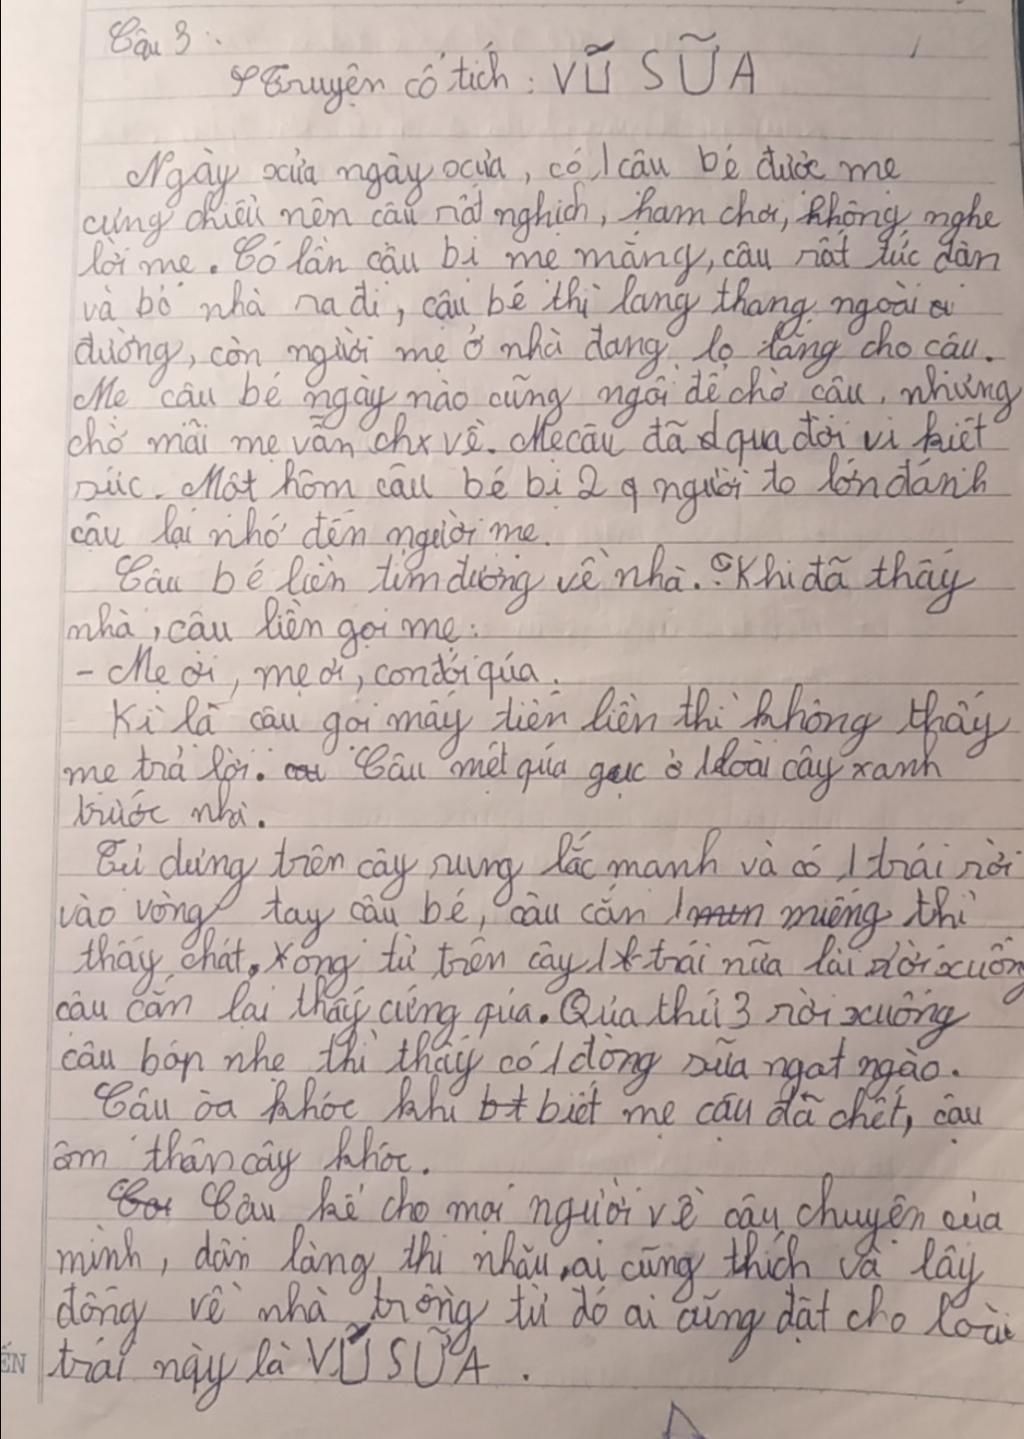 Câu 3:
Truyện cổ tích: VŨ SỮA
Ngày xửa ngày xửa, có 1 câu bé được mẹ
cưng chiều nên câu rất nghịch, ham chơi, không nghe
lời mẹ. Có lần cậu bị mẹ mắng, câu rất tức dân
và bỏ nhà ra đi, cậu bé thì lang thang ngoài
đường, còn người mẹ ở nhà đang lo lắng cho câu.
Mẹ câu bé ngày nào cũng ngồi để chờ câu, nhưng
chờ mãi mẹ vẫn chx về. Mẹ câu đã qua đời vì kiệt
sức. Một hôm câu bé bị 2 người to lớn đánh
cậu lại nhớ đến người mẹ.
Câu bé liền tìm đường về nhà. Khi đã thấy
nhà, câu liền gọi mẹ:
- Mẹ ơi, mẹ ơi, con đói qúa.
Kì lã câu gọi mấy tiên liền thì không thấy
mẹ trả lời. Câu mệt qúa gục ở 1 loài cây xanh
trước nhà.
Tư dưng trên cây rung lắc mạnh và có 1 trái rời
vào vòng tay câu bé, câu cắn 1 miếng thì
thấy chát, xong từ trên cây 1 trái nữa lại rời xuống
câu cắn lại thấy cứng qúa. Qủa thứ 3 rời xuống
câu bóp nhẹ thì thấy có 1 dòng sữa ngọt ngào.
Câu òa khóc khi biết mẹ cậu đã chết, cậu
ôm thân cây khóc.
Câu kể cho mọi người về câu chuyện của
mình, dân làng thi nhău, ai cũng thích và lấy
đông về nhà trồng từ đó ai cũng đặt cho loài
trái này là VŨ SỮA.
ẾN